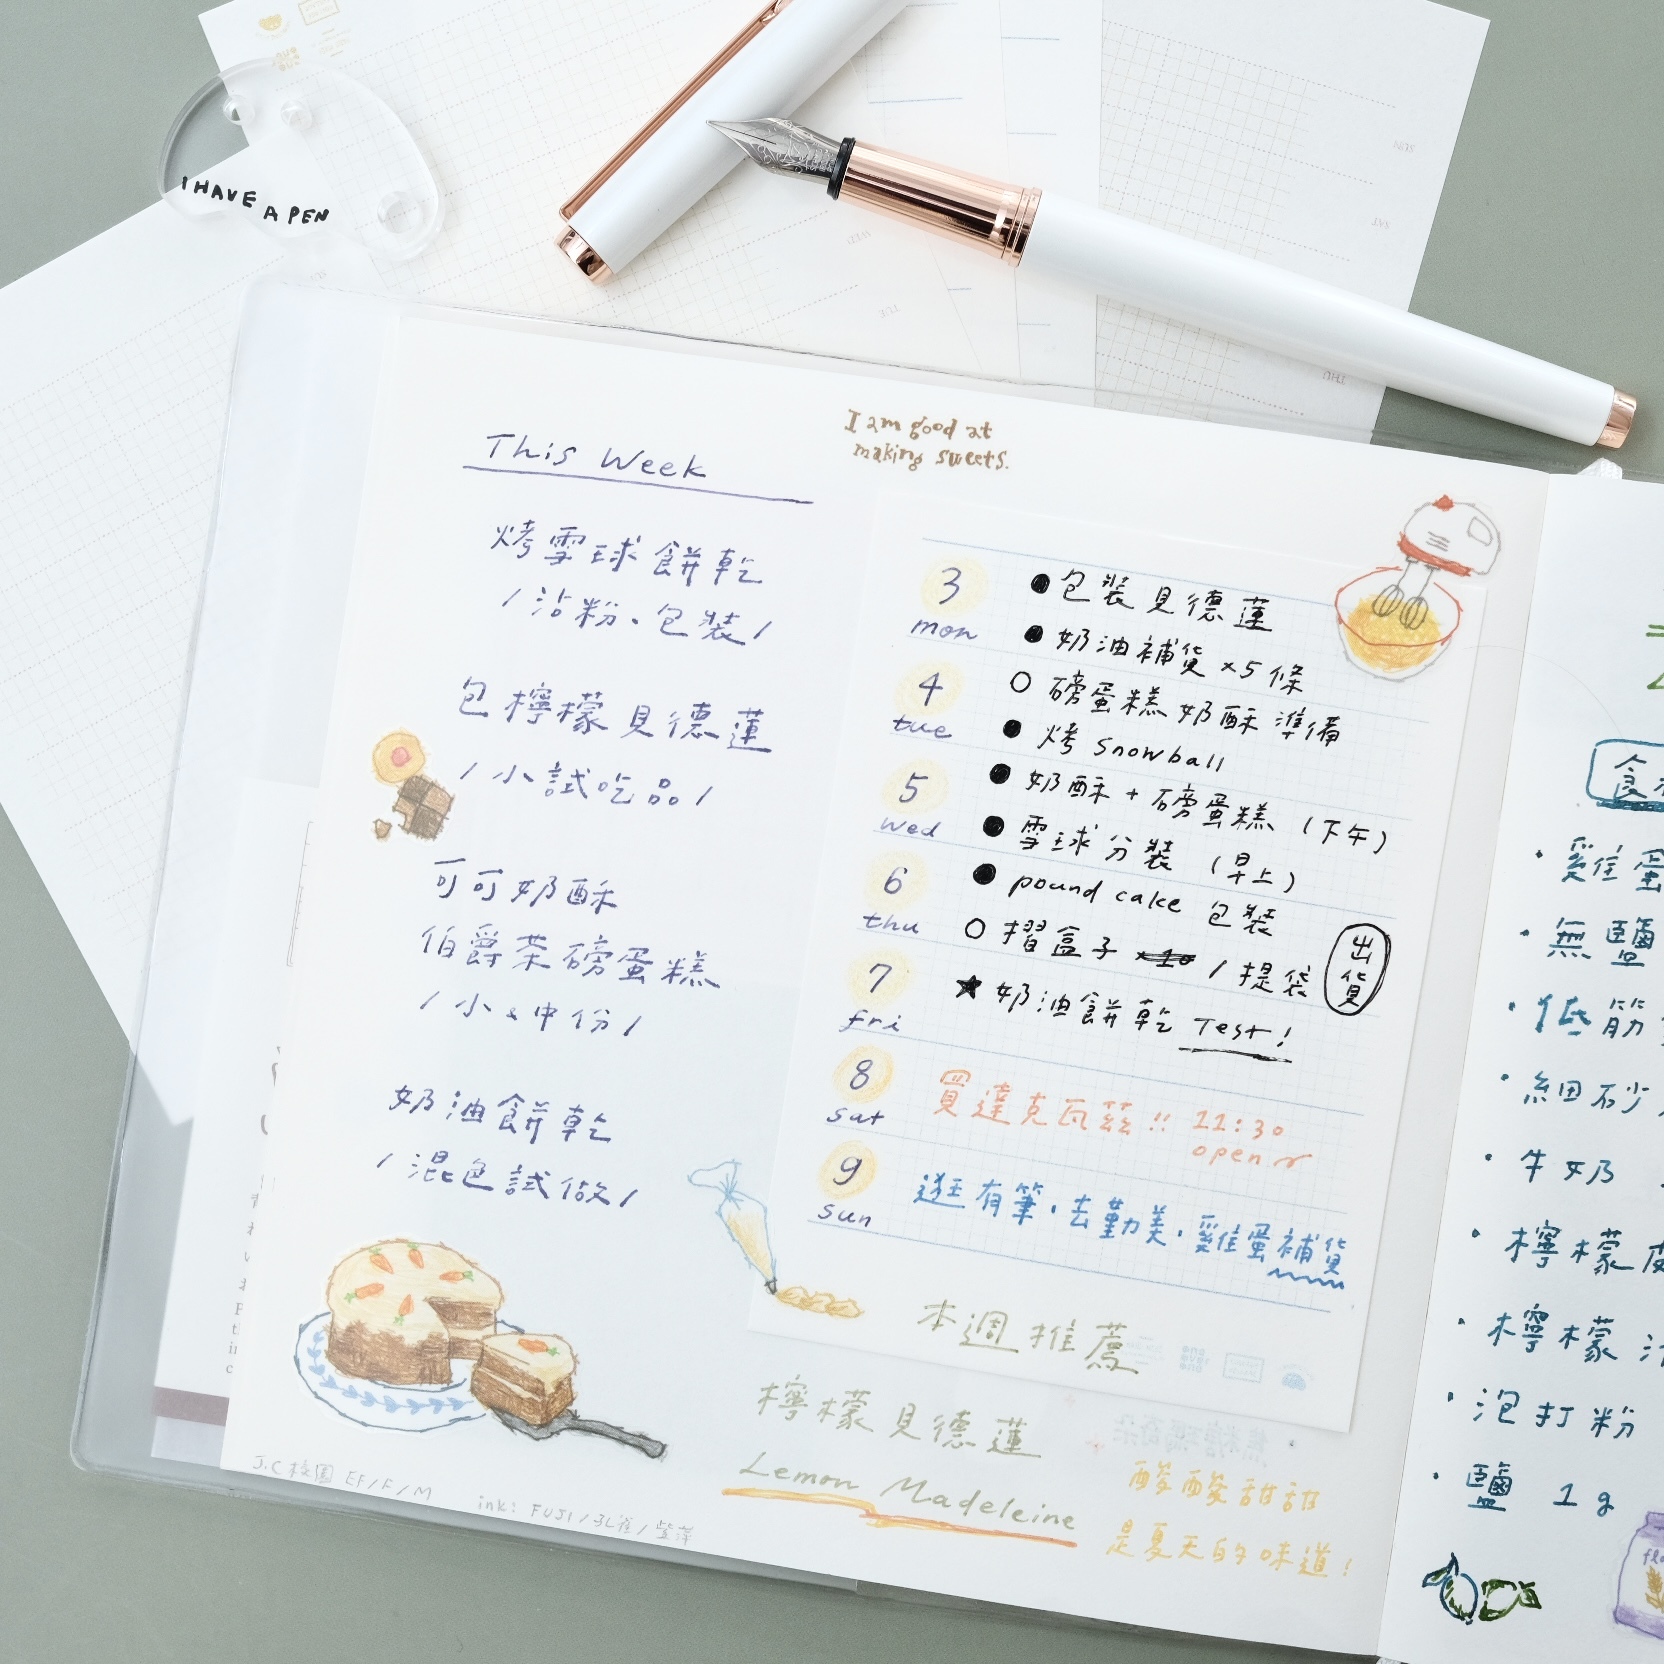 I HAVE A PEN
I am good at
making sweets.
This Week
烤雪球餅乾
/沾粉.包裝/
包檸檬貝德蓮
/小試吃品/
可可奶酥
伯爵茶磅蛋糕
/小&中份/
奶油餅乾
/混色試做/
3
mon
● 包裝貝德蓮
● 奶油補貨 x5條
4
tue
○ 磅蛋糕奶酥準備
● 烤 snowball
5
wed
● 奶酥+磅蛋糕 (下午)
● 雪球分裝 (早上)
6
thu
● pound cake 包裝
○ 摺盒子 x10 / 提袋
出貨
7
fri
★ 奶油餅乾 Test!
8
sat
買達克瓦茲!! 11:30
open
9
sun
逛有筆.去勤美.雞蛋補貨
本週推薦
檸檬貝德蓮
Lemon Madeleine
酸酸甜甜
是夏天的味道!
J.C校園 EF/F/M
ink: FUJI/
食
·雞蛋
·無鹽
·低筋
·細砂
·牛奶
·檸檬皮
·檸檬汁
·泡打粉
·鹽 1g